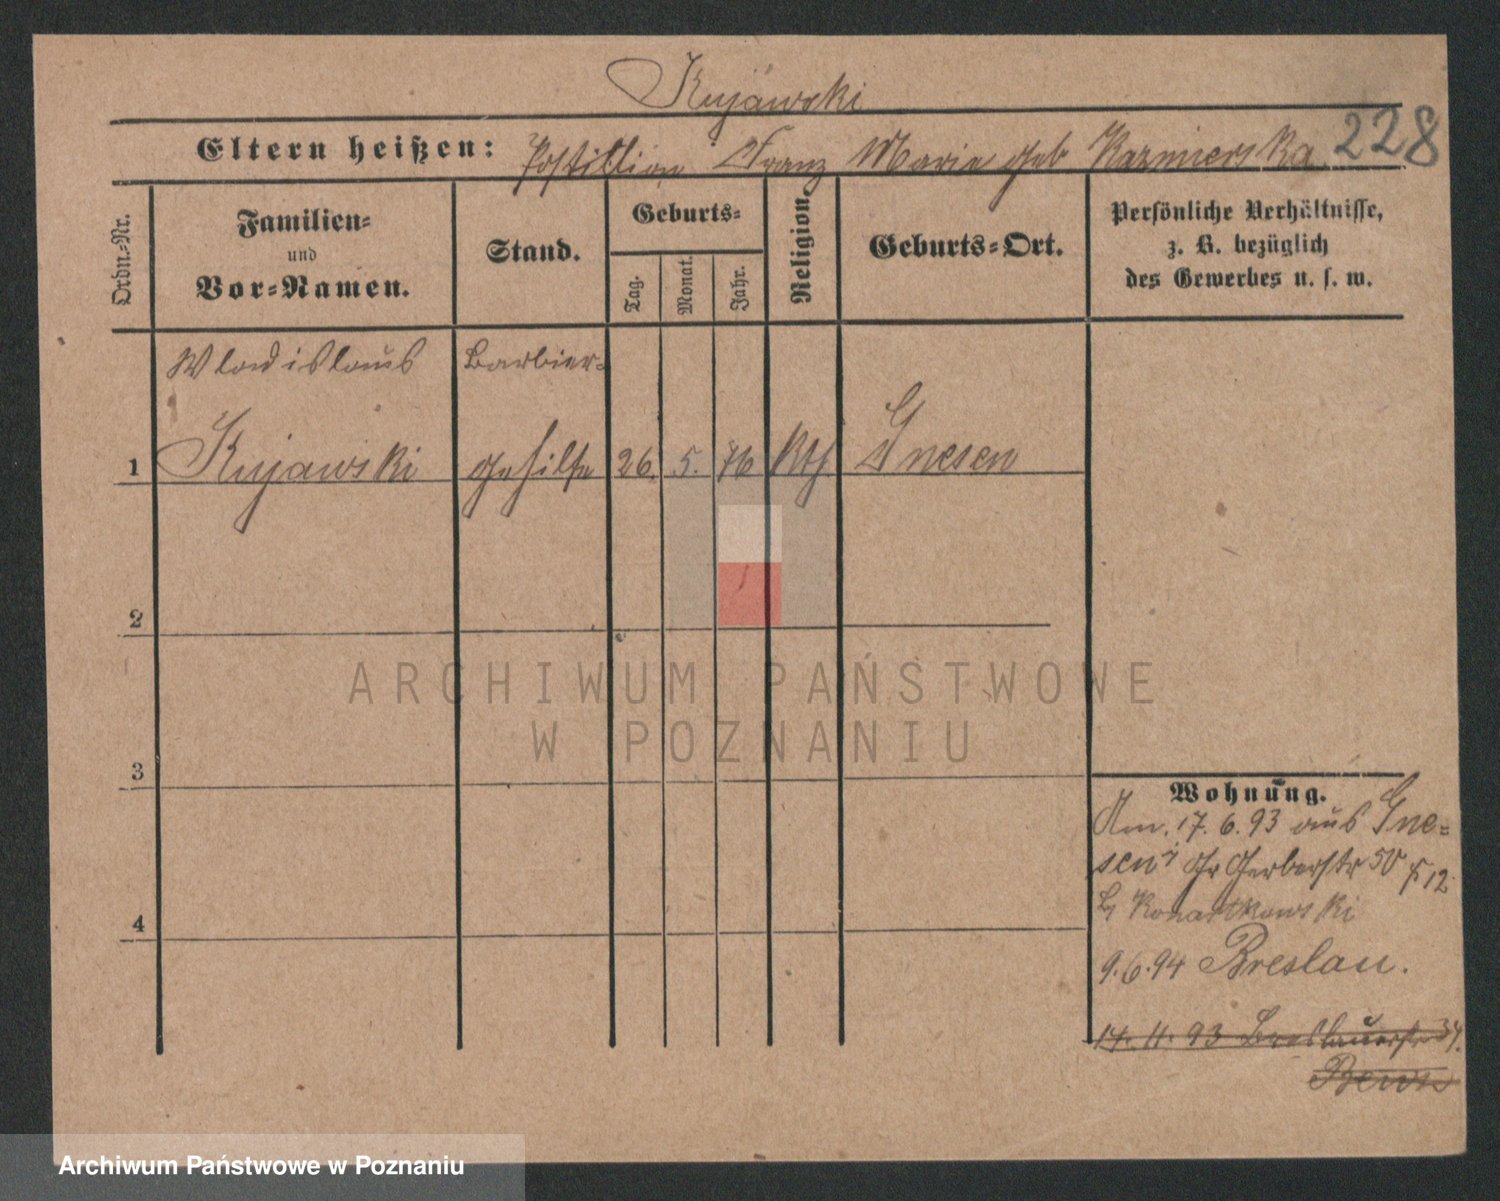 Kujawski
228
Eltern heißen: Postillion Franz Marie geb Kazmierska
Ordn.-Nr.
Familien-
und
Vor-Namen.
Stand.
Geburts-
Tag.
Monat.
Jahr.
Religion.
Geburts-Ort.
Persönliche Verhältnisse,
z. B. bezüglich
des Gewerbes u. s. w.
Wladislaus Barbier-
1 Kujawski gehilfe 26. 5. 76 kth Gnesen
2
3
4
ARCHIWUM PAŃSTWOWE
W POZNANIU
Wohnung.
Am. 17. 6. 93 aus Gne-
sen Gr Gerberstr 50
9.6.94 Breslau.
14. 11. 93 Breslauerstr 34.
Archiwum Państwowe w Poznaniu